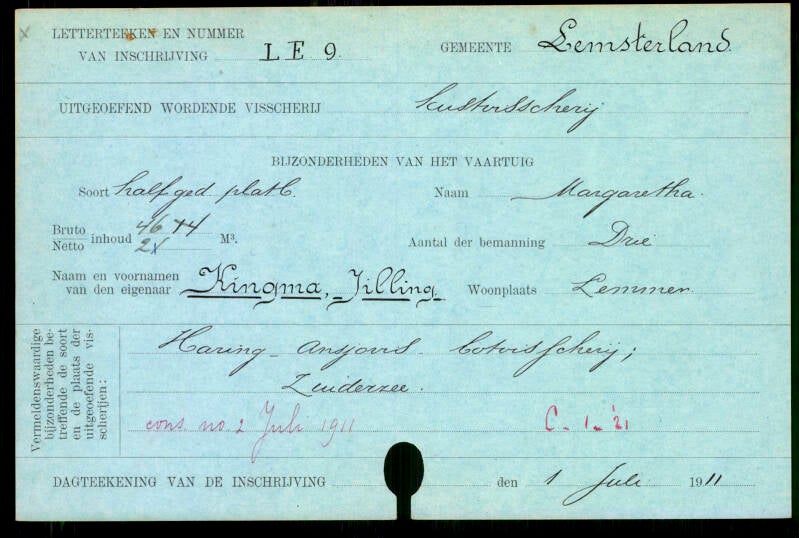 LETTERTEEKEN EN NUMMER
VAN INSCHRIJVING LE 9. GEMEENTE Lemsterland.
UITGEOEFEND WORDENDE VISSCHERIJ kustvisscherij
BIJZONDERHEDEN VAN HET VAARTUIG
Soort half ged platb. Naam Margaretha.
Bruto 46
Netto inhoud M³. Aantal der bemanning Drie
Naam en voornamen
van den eigenaar Kingma, Jilling. Woonplaats Lemmer.
Vermeldenswaardige
bijzonderheden be-
treffende de soort
en de plaats der
uitgeoefende vis-
scherijen:
Haring - ansjovis - botvisscherij;
Zuiderzee.
cons. no. 2 Juli 1911 C - 1 - '21
DAGTEEKENING VAN DE INSCHRIJVING den 1 Juli 1911